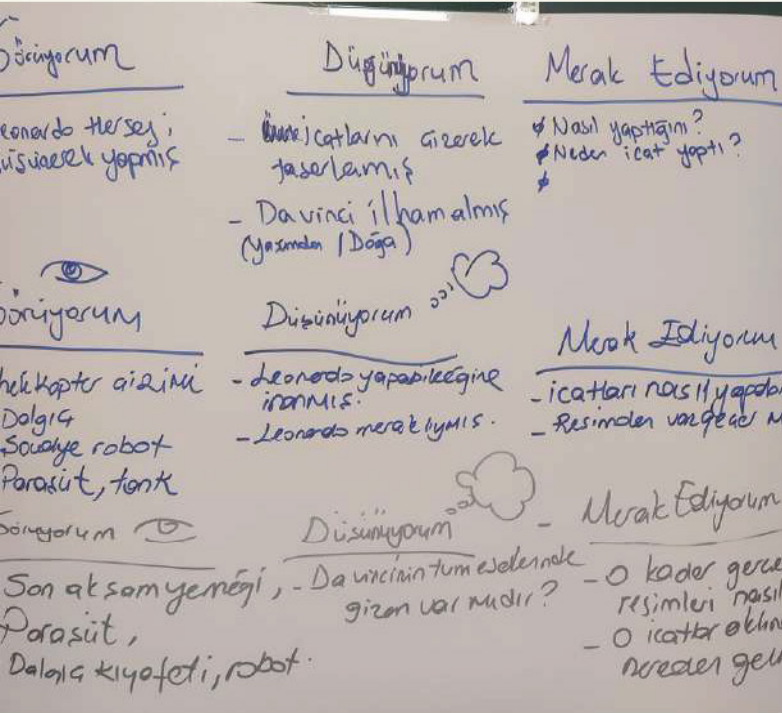 Görüyorum
Leonardo Herşeyi
düşünerek yapmış
Düşünüyorum
- icatlarını çizerek
tasarlamış
- Da vinci ilham almış
(Yaşamdan / Doğa)
Merak Ediyorum
Nasıl yaptığını?
Neden icat yaptı?
Görüyorum
helikopter çizimi
Dalgıç
Şovalye robot
Paraşüt, tank
Düşünüyorum
- Leonardo yapabileceğine
inanmış.
- Leonardo meraklıymış.
Merak Ediyorum
- icatları nasıl
- Resimden vazgeçer
Görüyorum
Son akşam yemeği,
Paraşüt,
Dalgıç kıyafeti, robot.
Düşünüyorum
- Da vincinin tüm eselerinde
gizem var mıdır?
- Merak Ediyorum
- O kadar
resimleri
- O icatlar
nereden